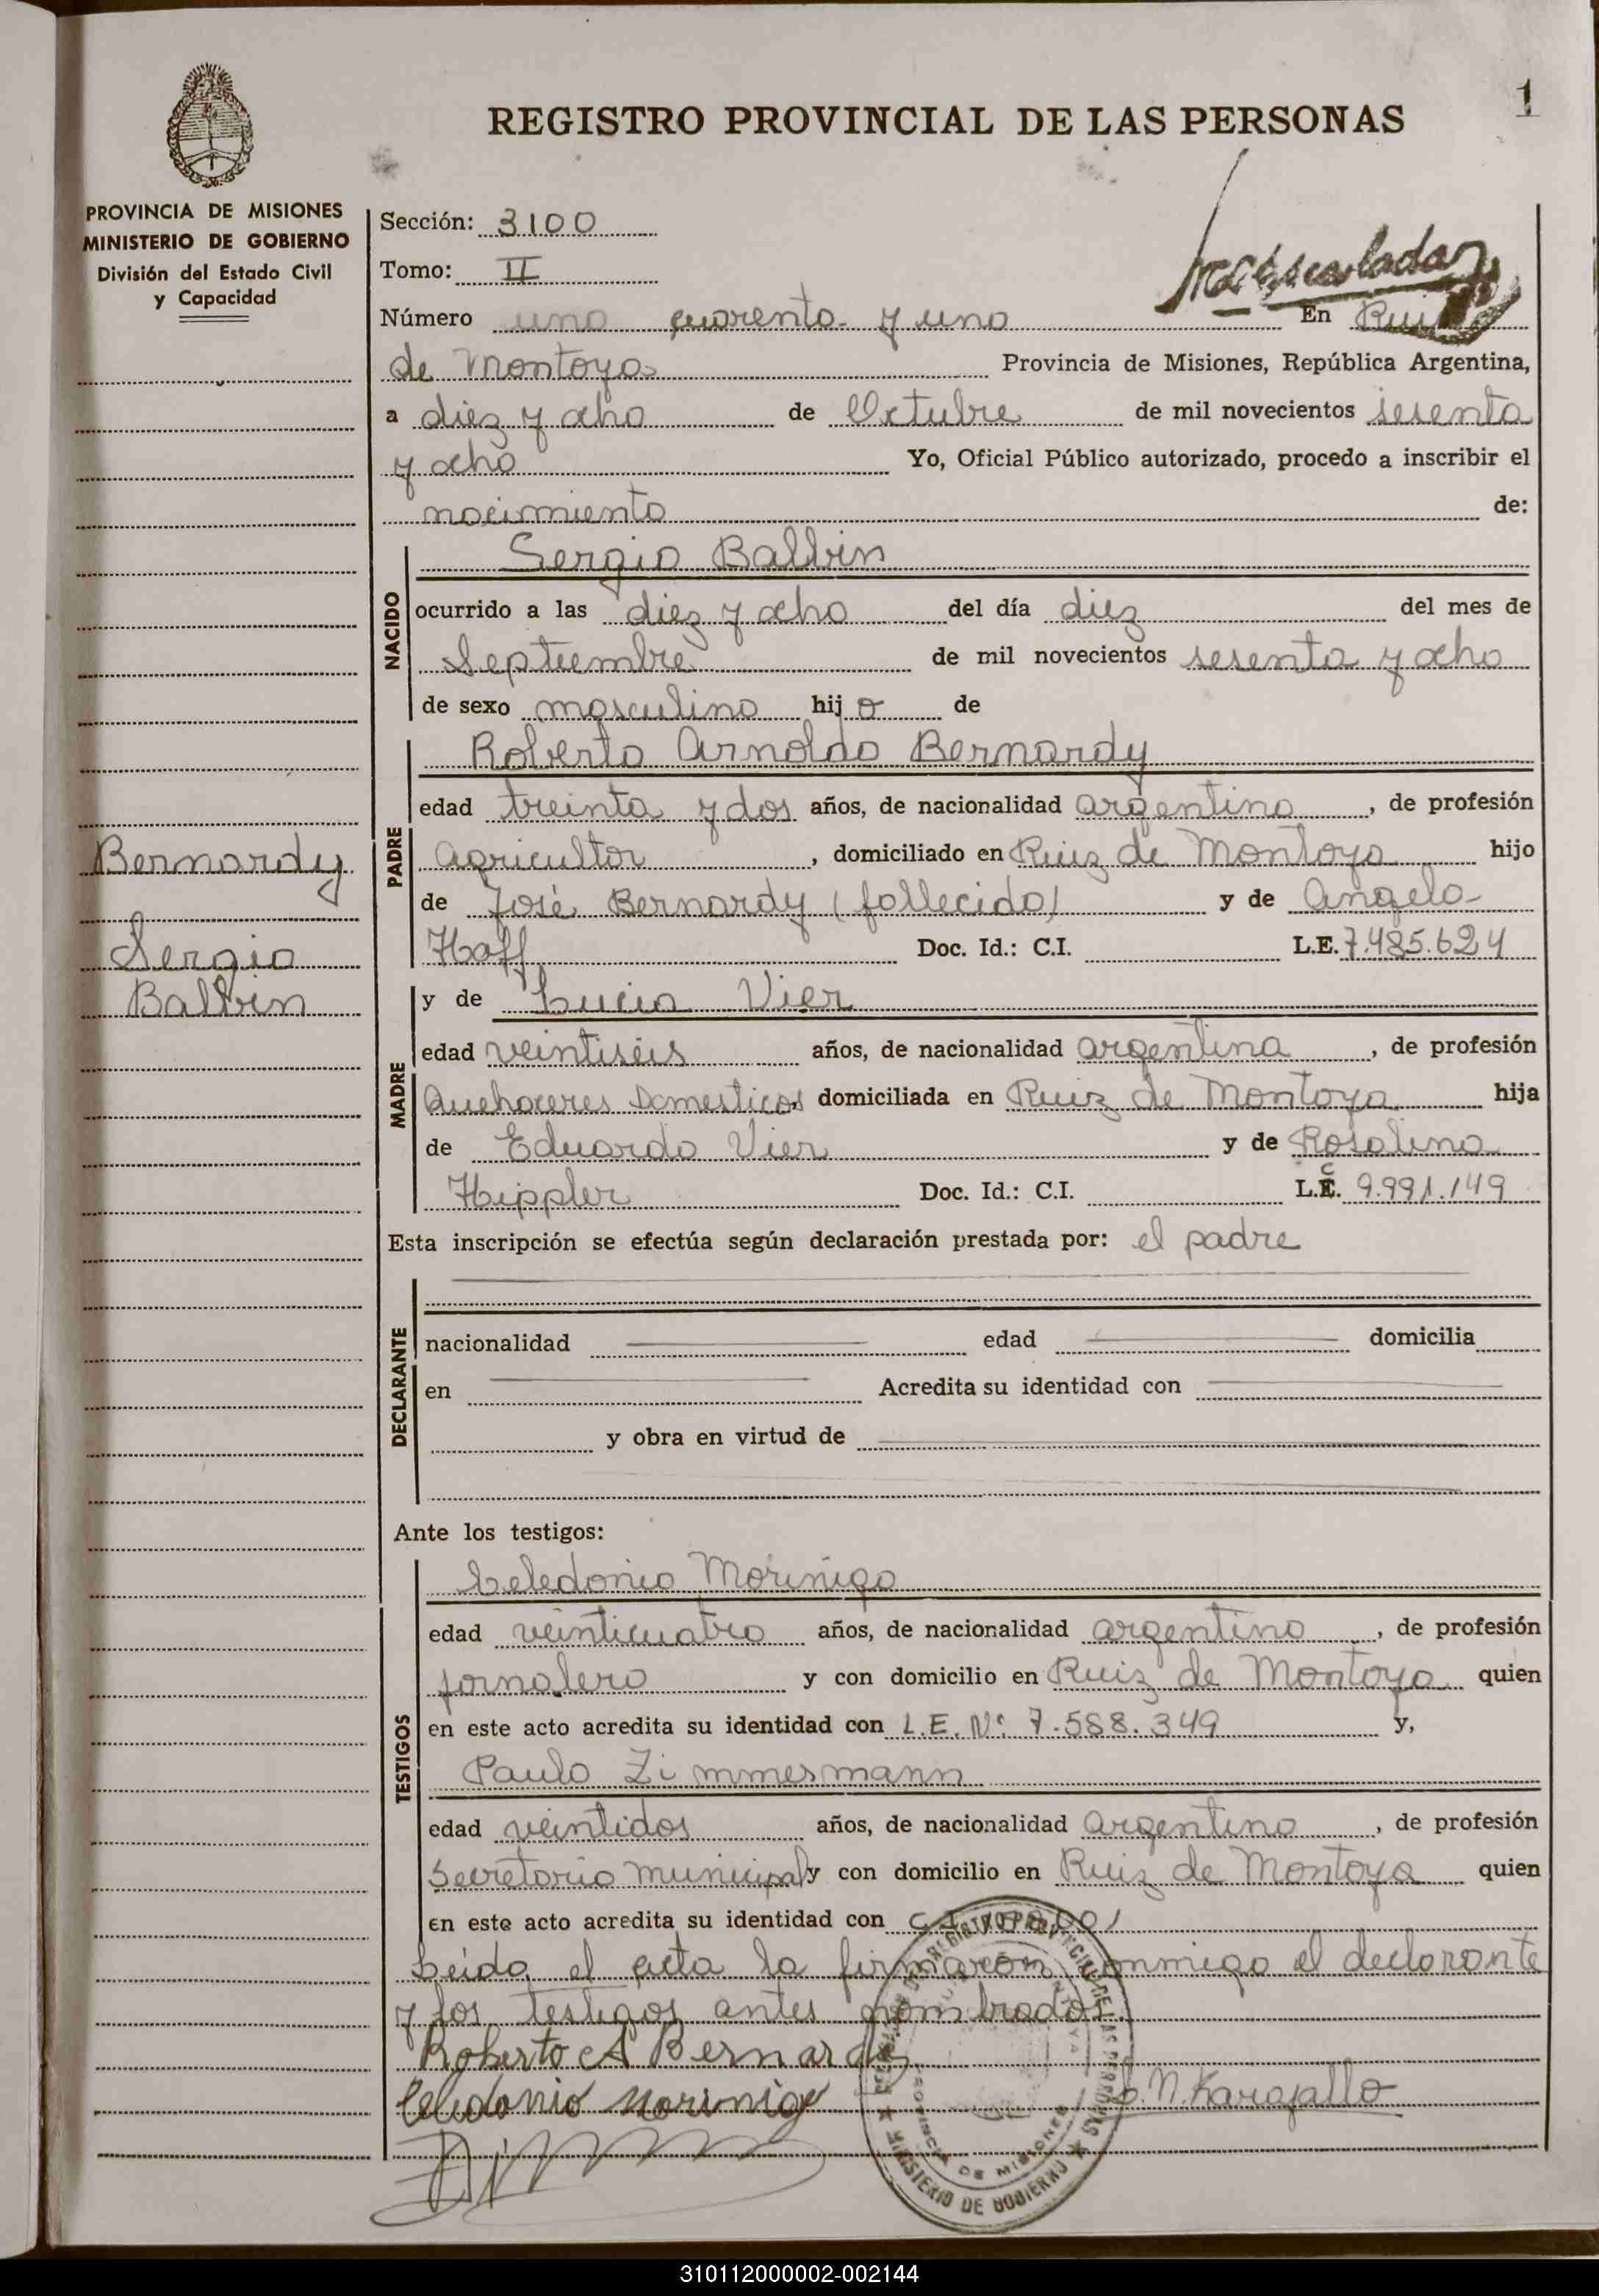 1
REGISTRO PROVINCIAL DE LAS PERSONAS
PROVINCIA DE MISIONES
MINISTERIO DE GOBIERNO
División del Estado Civil
y Capacidad
Bernardy
Sergio
Balbin
Sección: 3100
Tomo: II
Número uno cuarenta y uno En Ruiz
de Montoya Provincia de Misiones, República Argentina,
a diez y ocho de Octubre de mil novecientos sesenta
y ocho Yo, Oficial Público autorizado, procedo a inscribir el
nacimiento de:
NACIDO
Sergio Balbin
ocurrido a las diez y ocho del día diez del mes de
Septiembre de mil novecientos sesenta y ocho
de sexo masculino hijo de
PADRE
Roberto Arnoldo Bernardy
edad treinta y dos años, de nacionalidad argentino, de profesión
agricultor, domiciliado en Ruiz de Montoya hijo
de José Bernardy (fallecido) y de Angela
Haff Doc. Id.: C.I. L.E. 7.485.624
MADRE
y de Lucia Vier
edad veintiséis años, de nacionalidad argentina, de profesión
Quehaceres Domesticos domiciliada en Ruiz de Montoya hija
de Eduardo Vier y de Rosalina
Hippler Doc. Id.: C.I. L.C. 9.991.149
Esta inscripción se efectúa según declaración prestada por: el padre
DECLARANTE
nacionalidad edad domicilia
en Acredita su identidad con
y obra en virtud de
Ante los testigos:
TESTIGOS
Celedonio Moriñigo
edad veinticuatro años, de nacionalidad argentino, de profesión
jornalero y con domicilio en Ruiz de Montoya quien
en este acto acredita su identidad con L.E. Nº: 7.588.349 y,
Paulo Zimmermann
edad veintidos años, de nacionalidad argentino, de profesión
Secretario municipal y con domicilio en Ruiz de Montoya quien
en este acto acredita su identidad con
Leida el acta la firmaron conmigo el declarante
y los testigos antes nombrados.
Roberto A Bernardy
Celedonio Morinigo
MINISTERIO DE GOBIERNO
PROVINCIA DE MISIONES
310112000002-002144